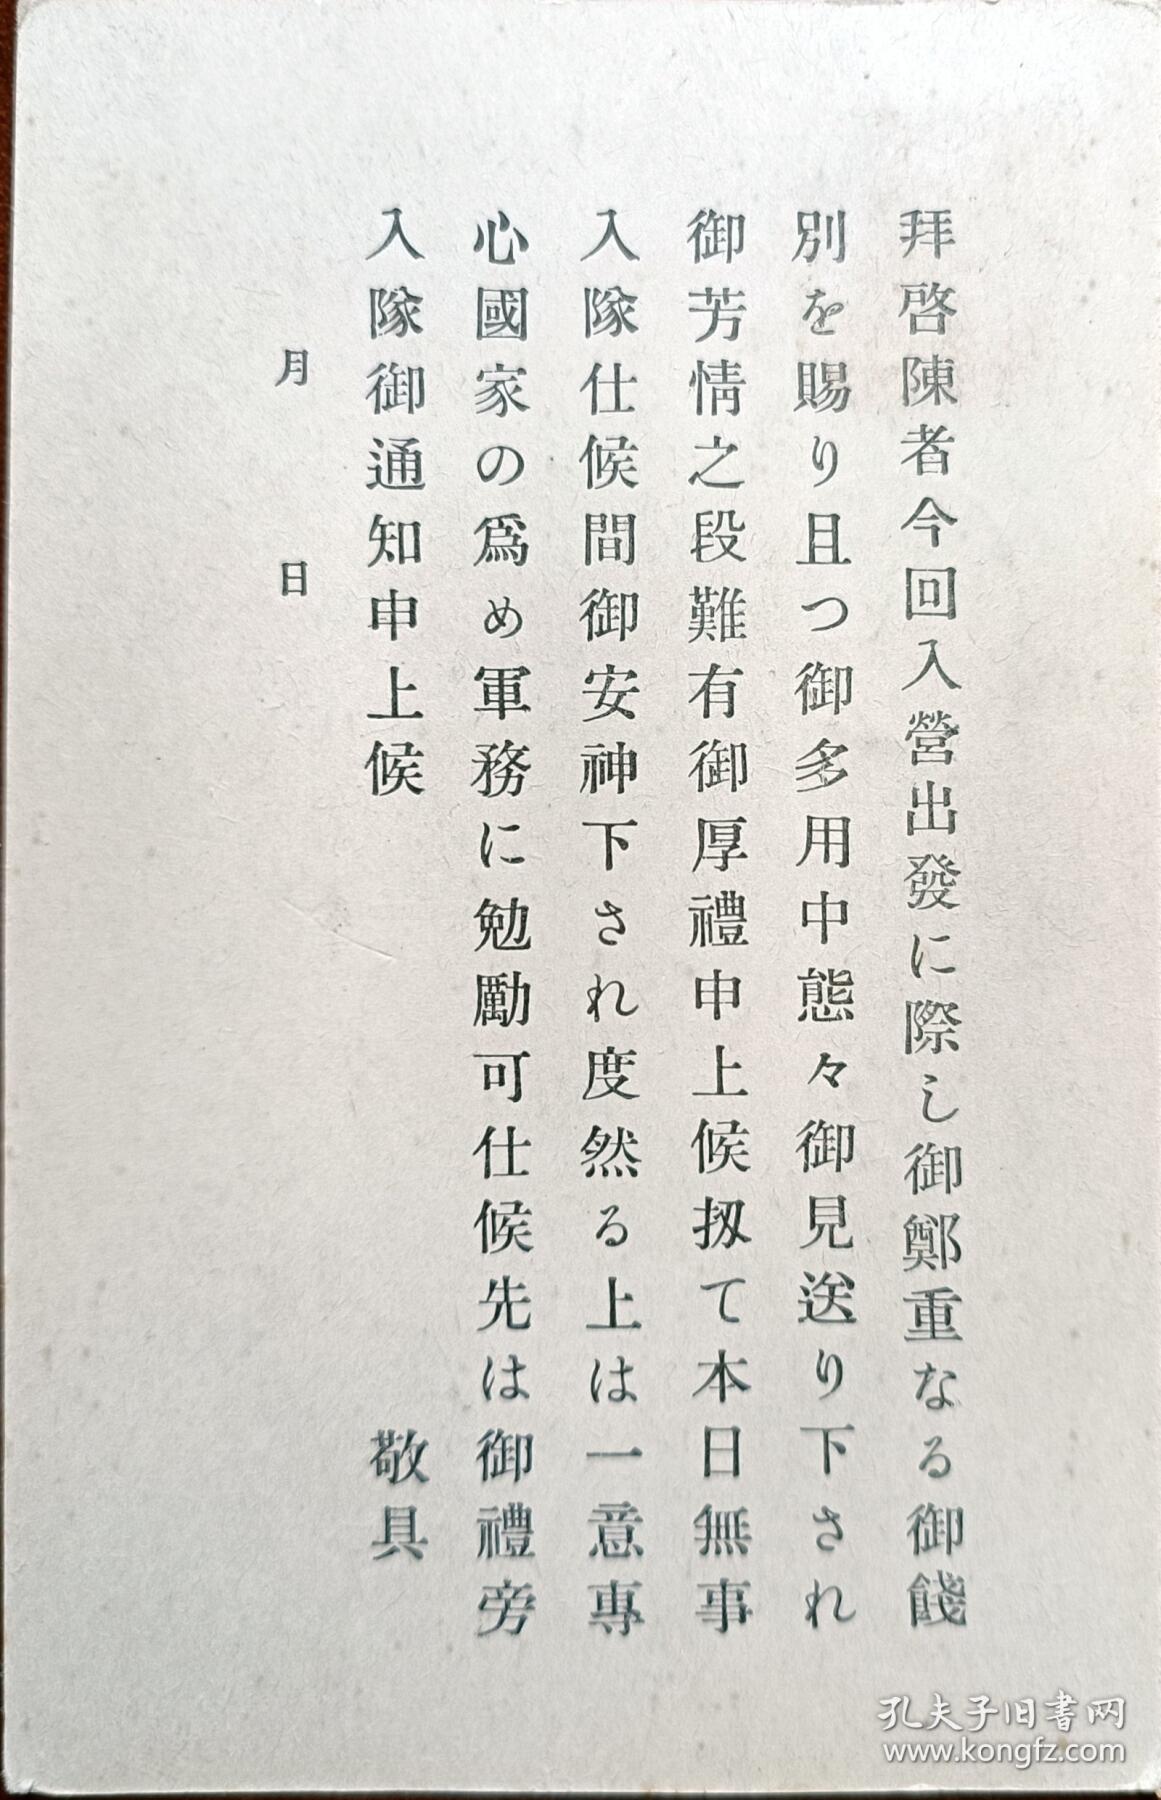 拜啓陳者今回入營出發に際し御鄭重なる御餞
別を賜り且つ御多用中態々御見送り下され
御芳情之段難有御厚禮申上候扨て本日無事
入隊仕候間御安神下され度然る上は一意專
心國家の爲め軍務に勉勵可仕候先は御禮旁
入隊御通知申上候　敬具
月　日
孔夫子旧書网
www.kongfz.com